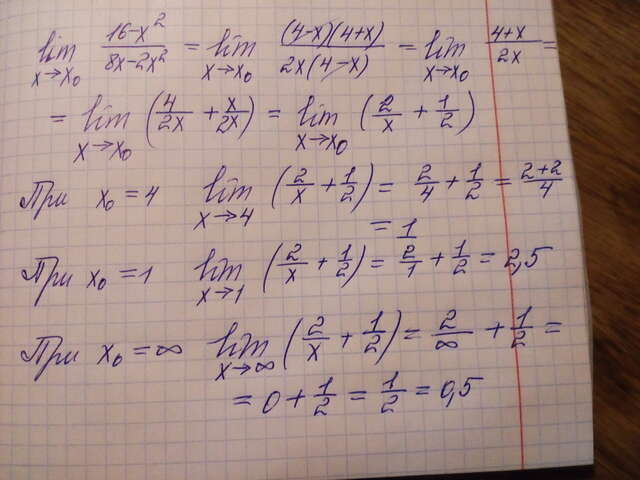 lim x→x₀ (16-x²)/(8x-2x²) = lim x→x₀ ((4-x)(4+x))/(2x(4-x)) = lim x→x₀ (4+x)/(2x) =
= lim x→x₀ (4/(2x) + x/(2x)) = lim x→x₀ (2/x + 1/2)
При x₀ = 4 lim x→4 (2/x + 1/2) = 2/4 + 1/2 = (2+2)/4
= 1
При x₀ = 1 lim x→1 (2/x + 1/2) = 2/1 + 1/2 = 2,5
При x₀ = ∞ lim x→∞ (2/x + 1/2) = 2/∞ + 1/2 =
= 0 + 1/2 = 1/2 = 0,5